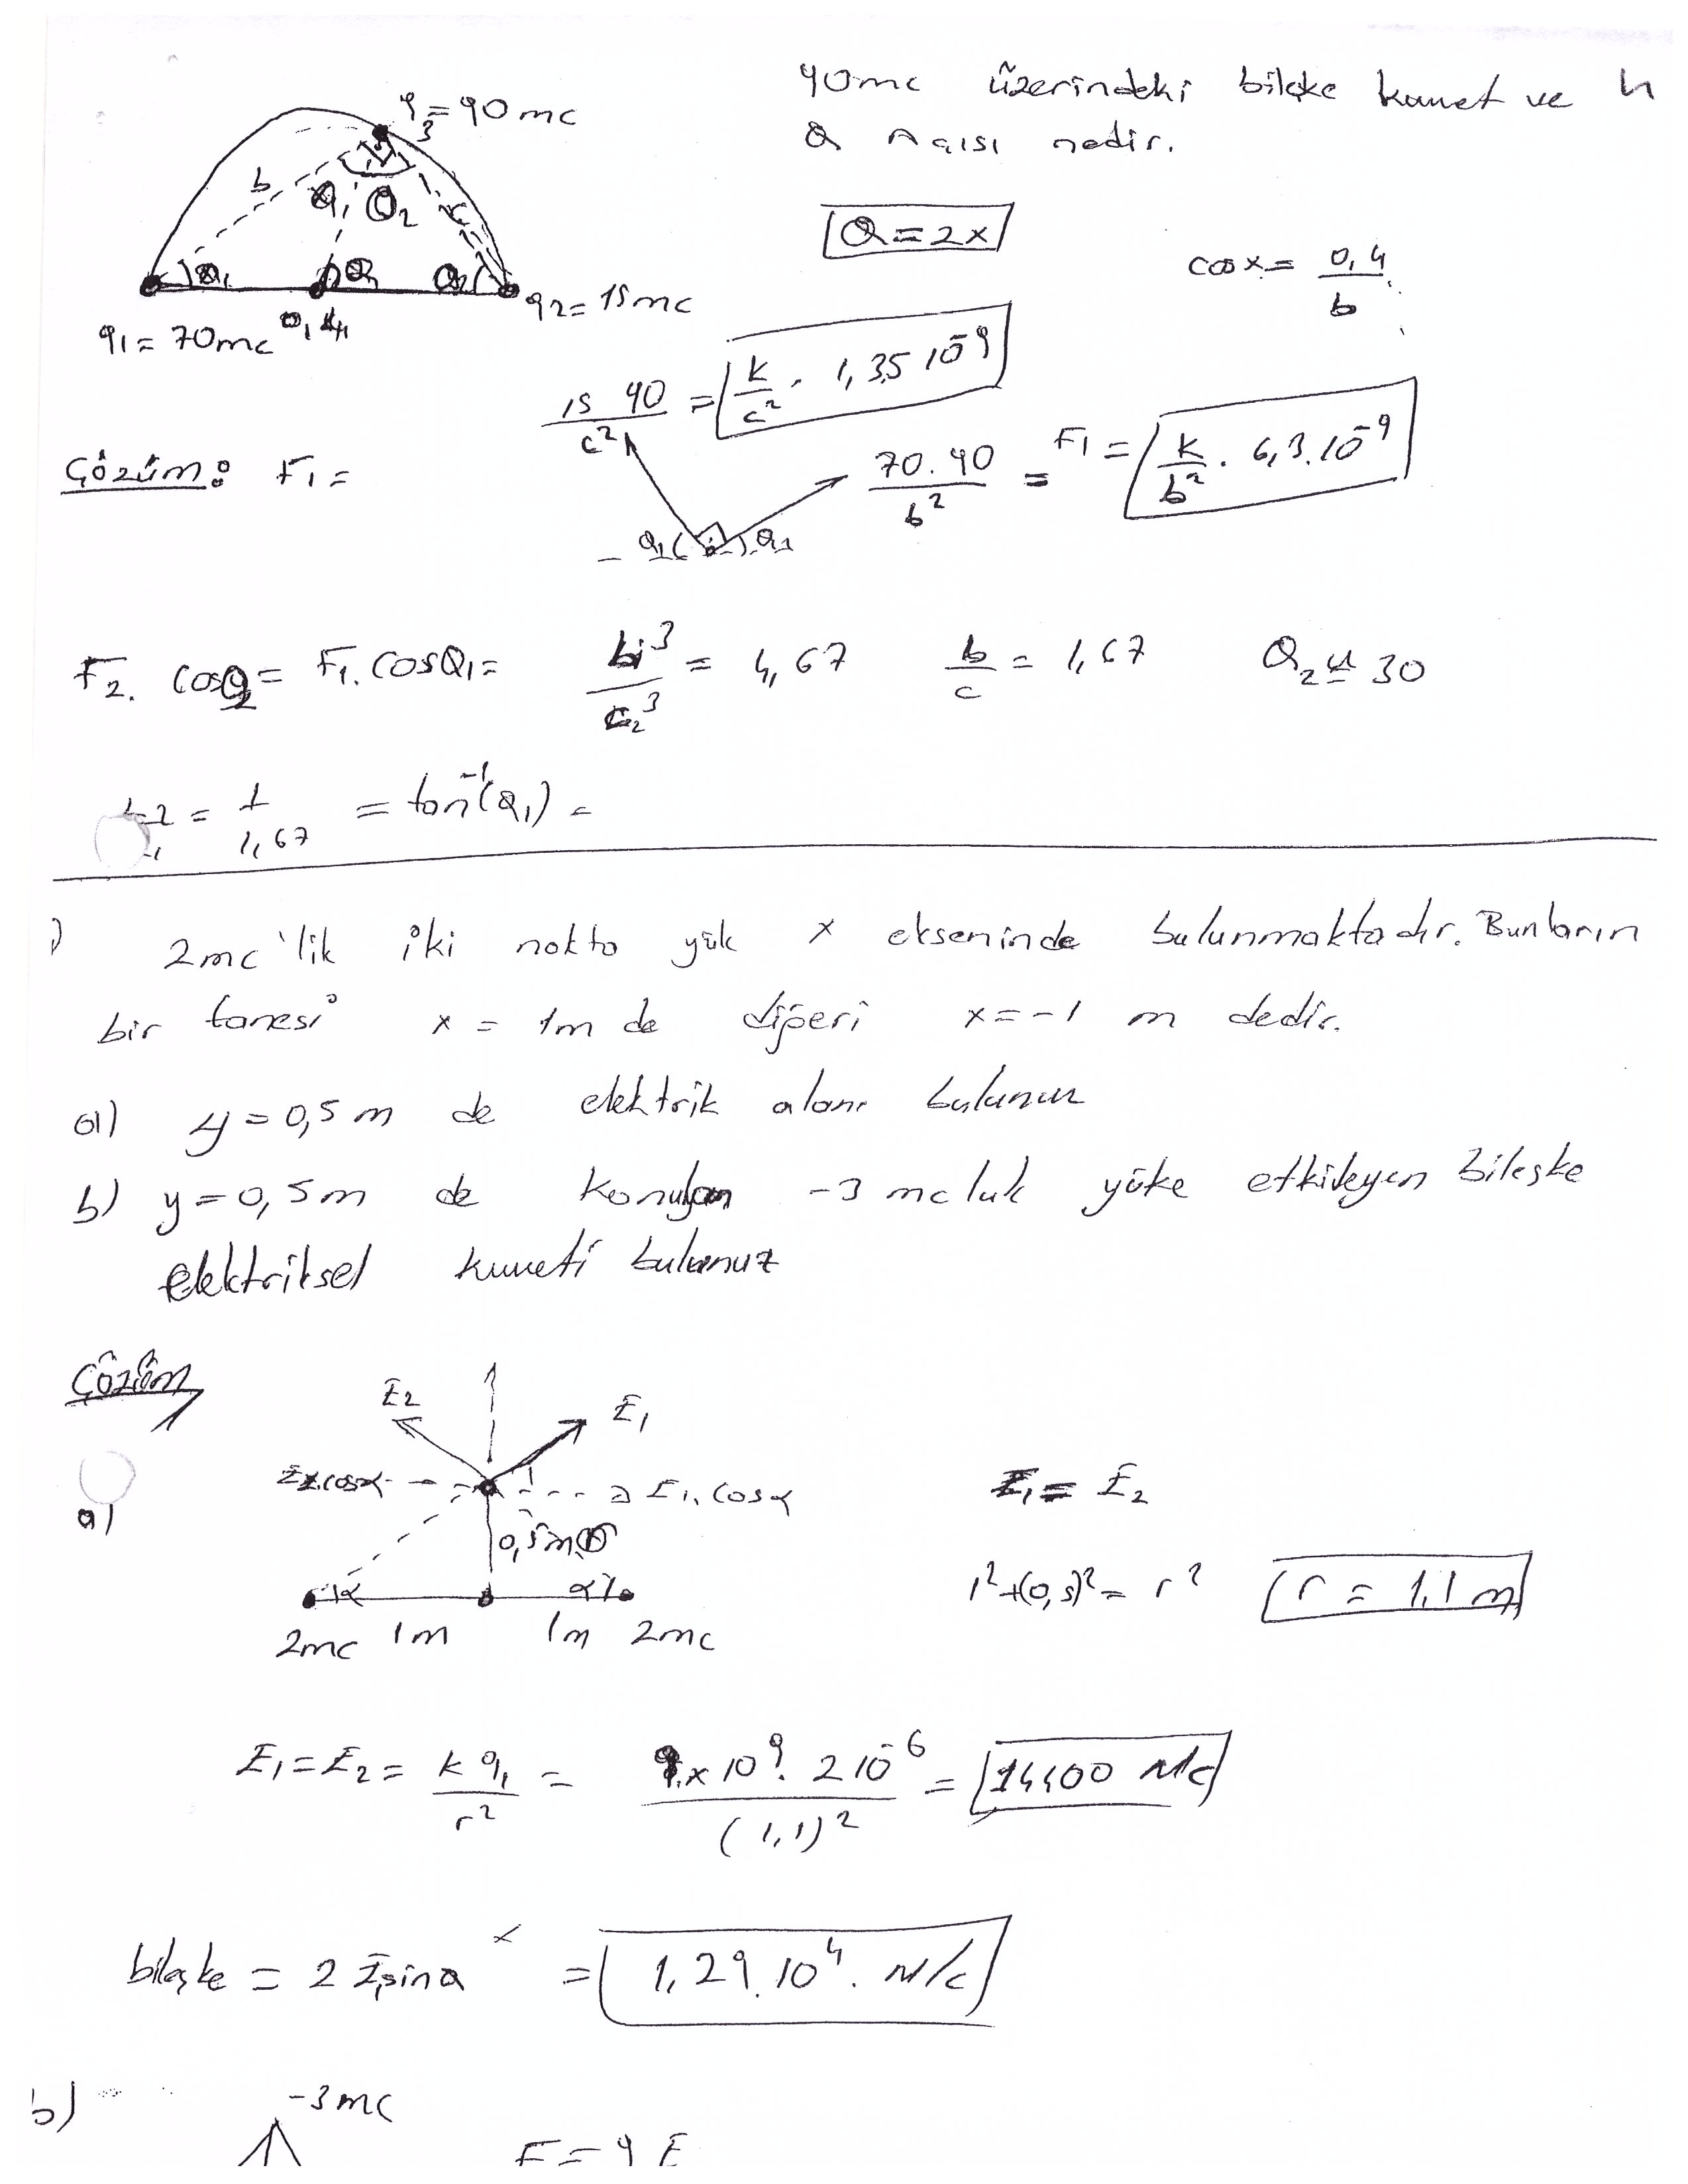 90mc üzerindeki bileşke kuvvet ve
Q Açısı nedir.
q3 = 90mc
b
Q1 Q2
c
Q1 Q Q2
q1 = 70mc
q2 = 15mc
Q = 2x
cosx = 0,4 / b
15 90 / c² = k / c² . 1,35 10⁻⁹
Çözüm: F1 =
70.90 / b² = F1 = k / b² . 6,3.10⁻⁹
F2. cosQ2 = F1. CosQ1 = b³ / c³ = 4,67 b / c = 1,67 Q2 ≅ 30
= 1 / 1,67 = tan⁻¹(Q1) =
2mc'lik iki nokta yük x ekseninde bulunmaktadır. Bunların
bir tanesi x = 1m de diğeri x = -1 m dedir.
a) y = 0,5m de elektrik alanı bulunuz
b) y = 0,5m de konulan -3 mcluk yüke etkileyen bileşke
elektriksel kuvveti bulunuz
Çözüm
a)
E2 E1
E2.cosα E1. Cosα
0,5m
α α
2mc 1m 1m 2mc
E1 = E2
1²+(0,5)² = r² r = 1,1 m
E1 = E2 = k q1 / r² = 9x10⁹. 2 10⁻⁶ / (1,1)² = 14400 N/C
bileşke = 2 E1sinα = 1,29.10⁴. N/C
b) -3mc
F = q E